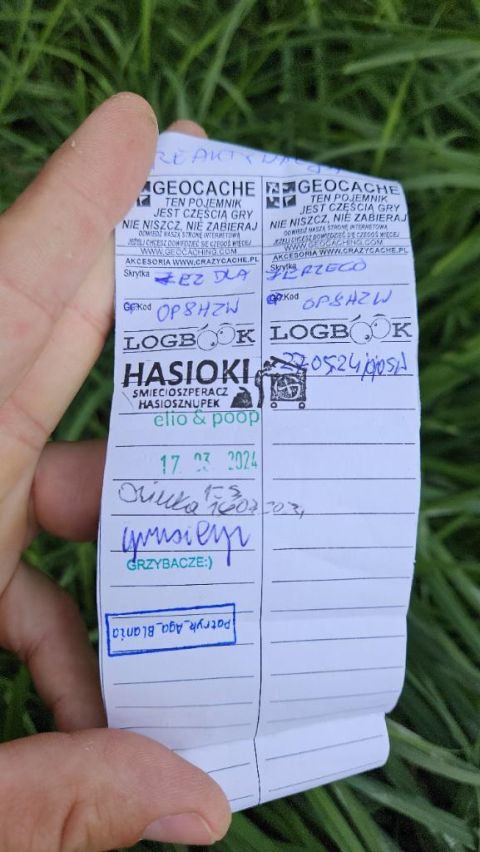 GEOCACHE
TEN POJEMNIK
JEST CZĘŚCIĄ GRY
NIE NISZCZ, NIE ZABIERAJ
ODWIEDŹ NASZĄ STRONĘ INTERNETOWĄ
JEŻELI CHCESZ DOWIEDZIEĆ SIĘ CZEGOŚ WIĘCEJ
WWW.GEOCACHING.COM
AKCESORIA WWW.CRAZYCACHE.PL
Skrytka JEŻ DLA
Kod OP8HZW
LOGBOOK
HASIOKI
ŚMIECIOSZPERACZ
HASIOSZNUPEK
elio & poop
17 03 2024
GRZYBACZE:)
Patryk_Aga_Blania
GEOCACHE
TEN POJEMNIK
JEST CZĘŚCIĄ GRY
NIE NISZCZ, NIE ZABIERAJ
ODWIEDŹ NASZĄ STRONĘ INTERNETOWĄ
JEŻELI CHCESZ DOWIEDZIEĆ SIĘ CZEGOŚ WIĘCEJ
WWW.GEOCACHING.COM
AKCESORIA WWW.CRAZYCACHE.PL
Skrytka JERZEGO
Kod OP8HZW
LOGBOOK
27.05.24